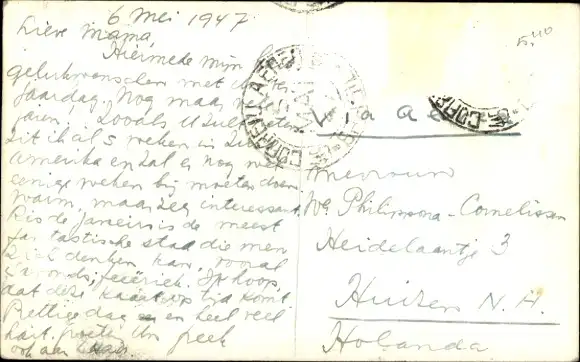 6 Mei 1947
Lieve Mama,
Hiermede mijn
gelukwenschen met Uw ver-
jaardag. Nog maar vele
jaren. Zooals U zult weten
zit ik al 5 weken in Zuid
Amerika en zal er nog wel
eenige weken bij moeten doen
Warm, maar zeer interessant.
Rio de Janeiro is de meest
fantastische stad die men
zich denken kan, vooral
's avonds, feeëriek. Ik hoop
dat deze kaart op tijd komt
Prettige dag en heel veel
ook aan
Via Aerea
CORREIO AEREO
CORRE
Mevrouw
We Philippona-Cornelissen
Heidelaantje 3
Huizen N.H.
Holanda